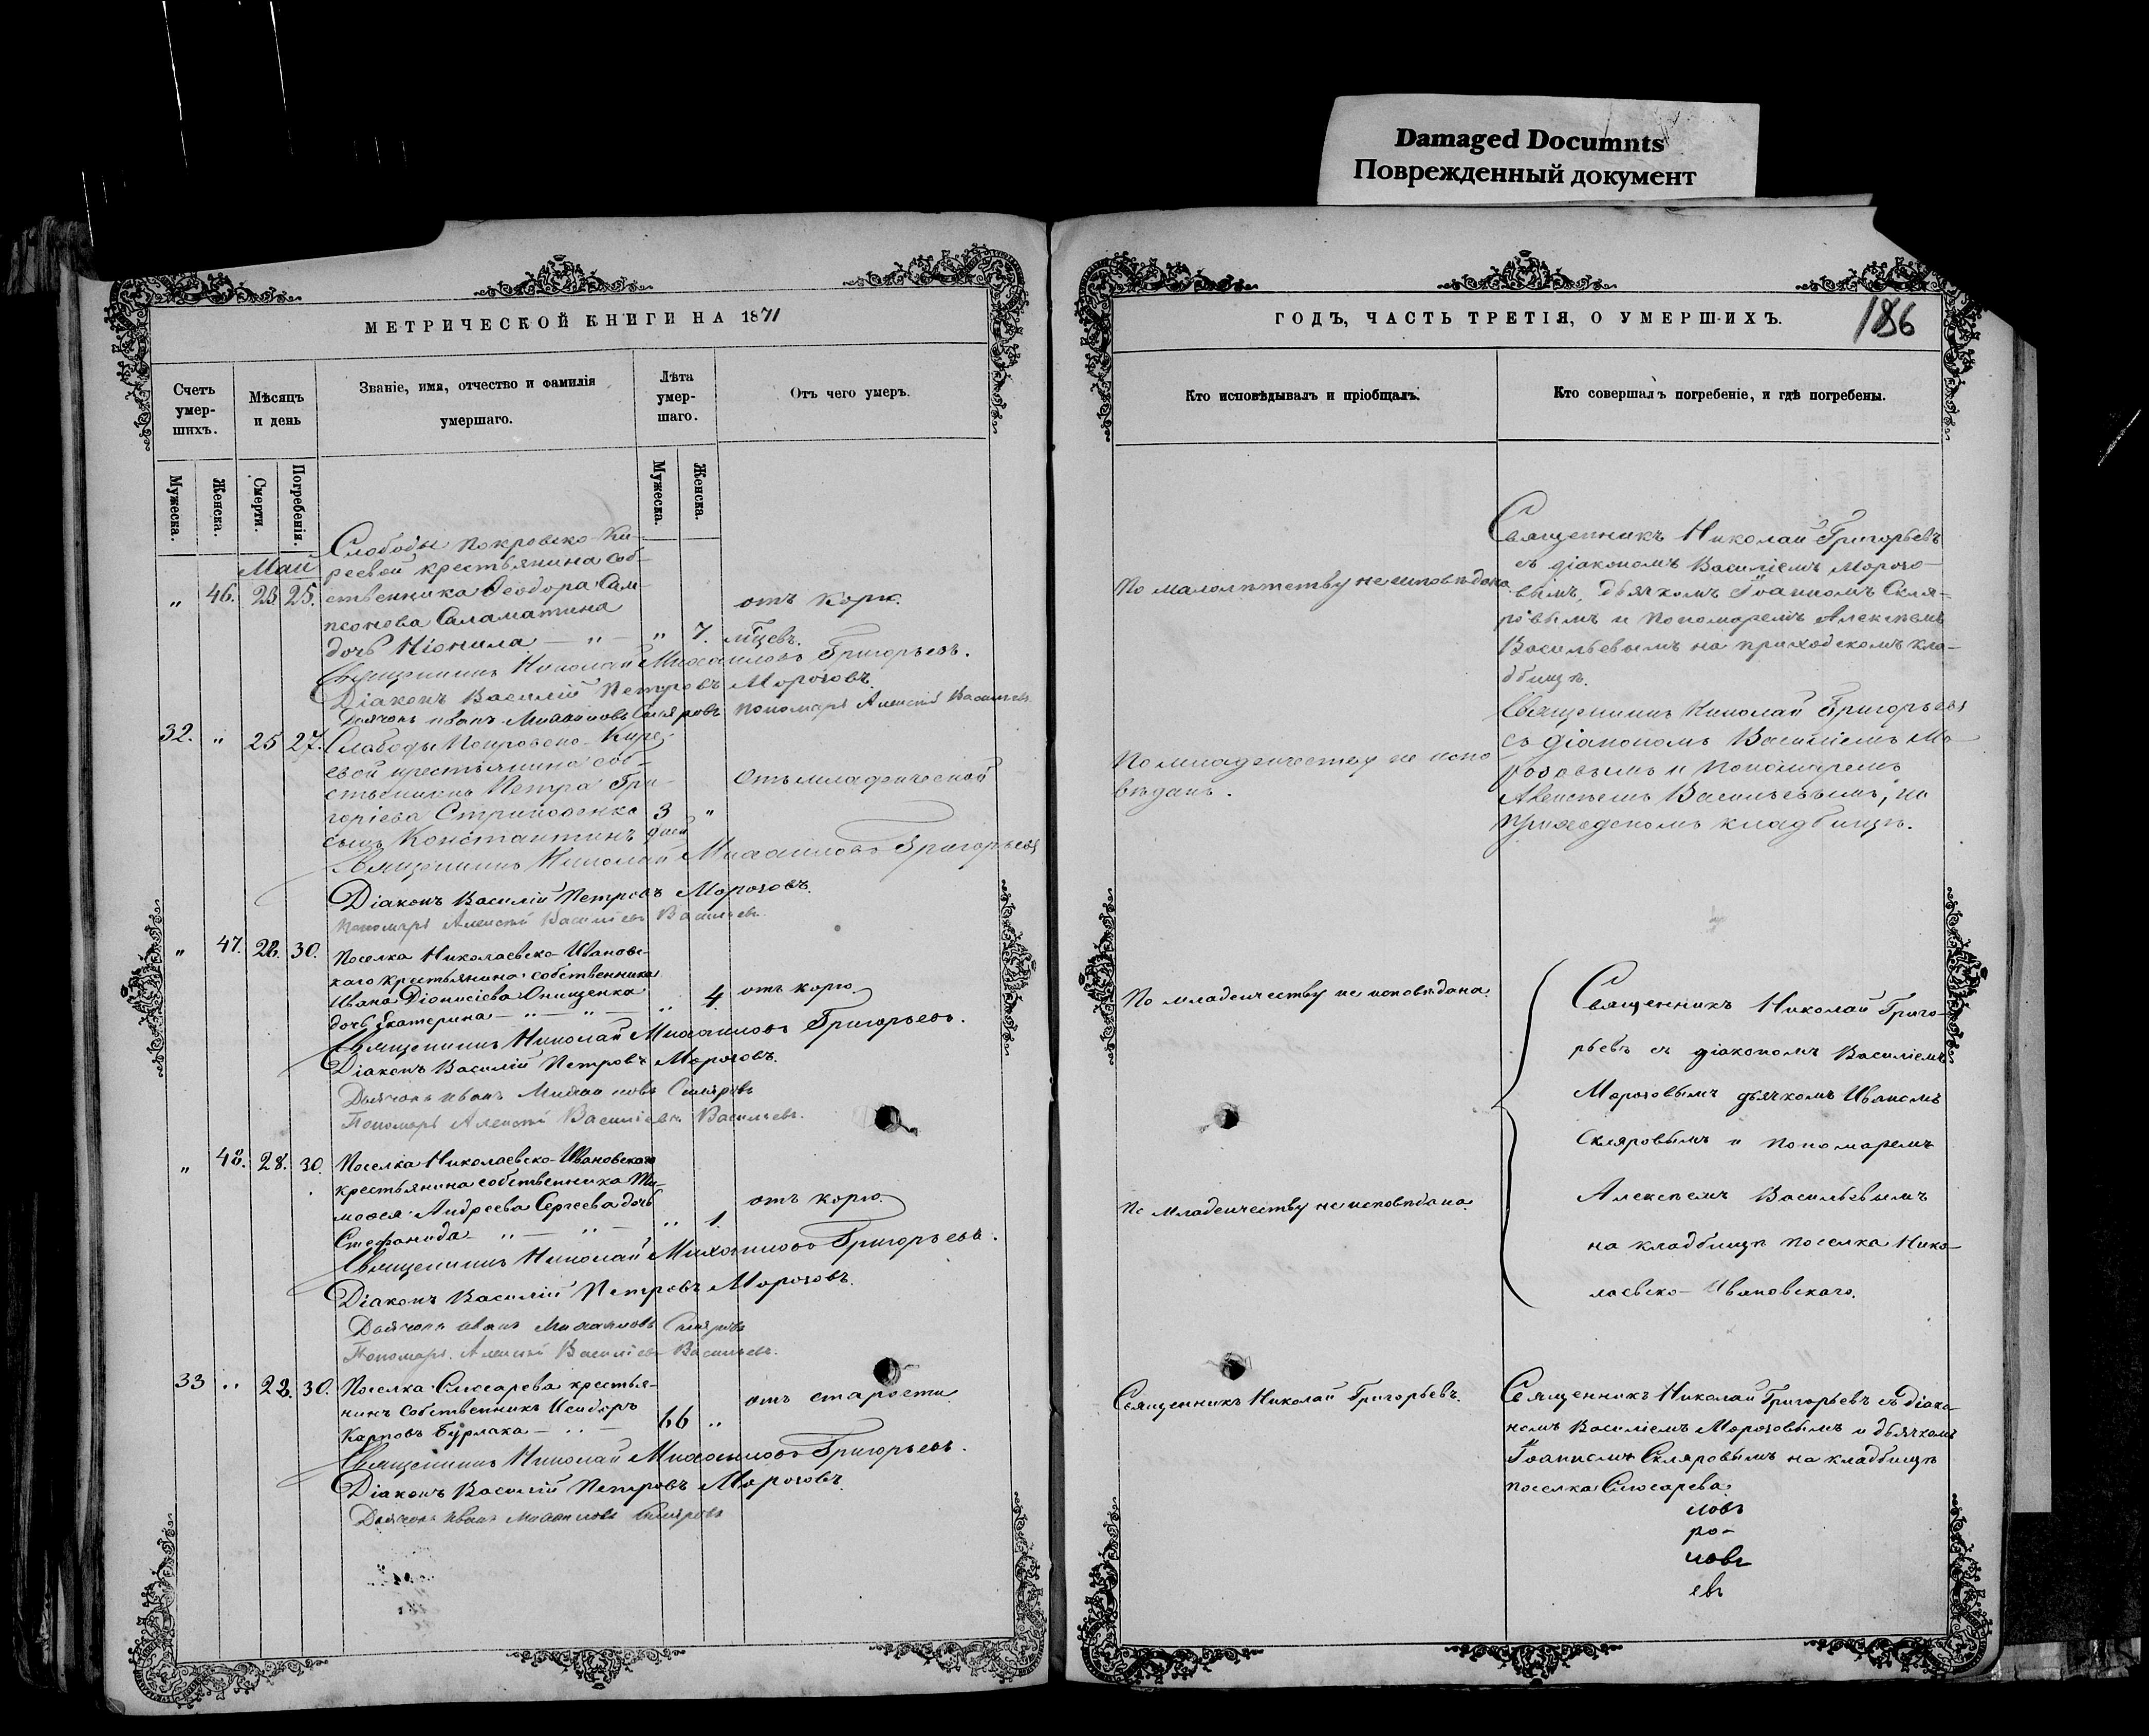 Damaged Documnts
Поврежденный документ
МЕТРИЧЕСКОЙ КНИГИ НА 1871
Счетъ умер-шихъ.
Мѣсяцъ и день
Званіе, имя, отчество и фамилія
умершаго.
Лѣта умер-шаго.
Отъ чего умеръ.
Мужеска.
Женска.
Смерти.
Погребенія.
Мужеска.
Женска.
Май
Слободы Покровско-Ки-
реевой крестьянина соб-
" 46. 23. 25. ственника Ѳеодора Сам-
псонова Саламатина
дочь Неонила — " — " 7. отъ кори.
мѣсцевъ.
Священникъ Николай Михаиловъ Григорьевъ.
Діаконъ Василій Петровъ Морозовъ.
Дьячокъ Иванъ Михаиловъ Скляровъ Пономарь Алексѣй Васильевъ
32. " 25 27. Слободы Покровско-Кире-
евой крестьянина соб-
ственника Петра Гри-
горіева
сынъ Константинъ 3 дней " Отъ младенческой
Священникъ Николай Михаиловъ Григорьевъ
Діаконъ Василій Петровъ Морозовъ.
Пономарь Алексѣй Василіевъ Васильевъ.
" 47. 28. 30. Поселка Николаевско-Ивановс-
каго крестьянина собственника
Ивана Діонисіева Онищенка
дочь Екатерина — " — " — " 4. отъ кори.
Священникъ Николай Михаиловъ Григорьевъ.
Діаконъ Василій Петровъ Морозовъ.
Дьячокъ Иванъ Михаиловъ Скляровъ
Пономарь Алексѣй Василіевъ Васильевъ.
" 48. 28. 30. Поселка Николаевско-Ивановскаго
крестьянина собственника Ти-
моѳея Андреева Сергеева дочь
Стефанида — " — " — " 1. отъ кори.
Священникъ Николай Михаиловъ Григорьевъ.
Діаконъ Василій Петровъ Морозовъ.
Дьячокъ Иванъ Михаиловъ Скляровъ
Пономарь Алексѣй Василіевъ Васильевъ.
33 " 28. 30. Поселка Слюсарева крестья-
нинъ собственникъ Исидоръ
Карповъ Бурлака — " — 66 " отъ старости
Священникъ Николай Михаиловъ Григорьевъ.
Діаконъ Василій Петровъ Морозовъ.
Дьячокъ Иванъ Михаиловъ Скляровъ
ГОДЪ, ЧАСТЬ ТРЕТІЯ, О УМЕРШИХЪ.
186
Кто исповѣдывалъ и пріобщалъ.
Кто совершалъ погребеніе, и гдѣ погребены.
По малолѣтству не исповѣдана
Священникъ Николай Григорьевъ
съ діакономъ Василіемъ Морозо-
вымъ, дьячкомъ Іоанномъ Скля-
ровымъ и пономаремъ Алексѣемъ
Васильевымъ на приходскомъ кла-
дбищѣ.
По младенчеству не испо-
вѣданъ.
Священникъ Николай Григорьевъ
съ діакономъ Василіемъ Мо-
розовымъ и пономаремъ
Алексѣемъ Васильевымъ, на
приходскомъ кладбищѣ.
По младенчеству не исповѣдана.
По младенчеству не исповѣдана.
Священникъ Николай Григо-
рьевъ съ діакономъ Василіемъ
Морозовымъ дьячкомъ Иваномъ
Скляровымъ и пономаремъ
Алексѣемъ Васильевымъ
на кладбищѣ поселка Нико-
лаевско-Ивановскаго.
Священникъ Николай Григорьевъ.
Священникъ Николай Григорьевъ съ діако-
номъ Василіемъ Морозовымъ и дьячкомъ
Іоанномъ Скляровымъ на кладбищѣ
поселка Слюсарева.
ловъ
ро-
ловъ
евъ